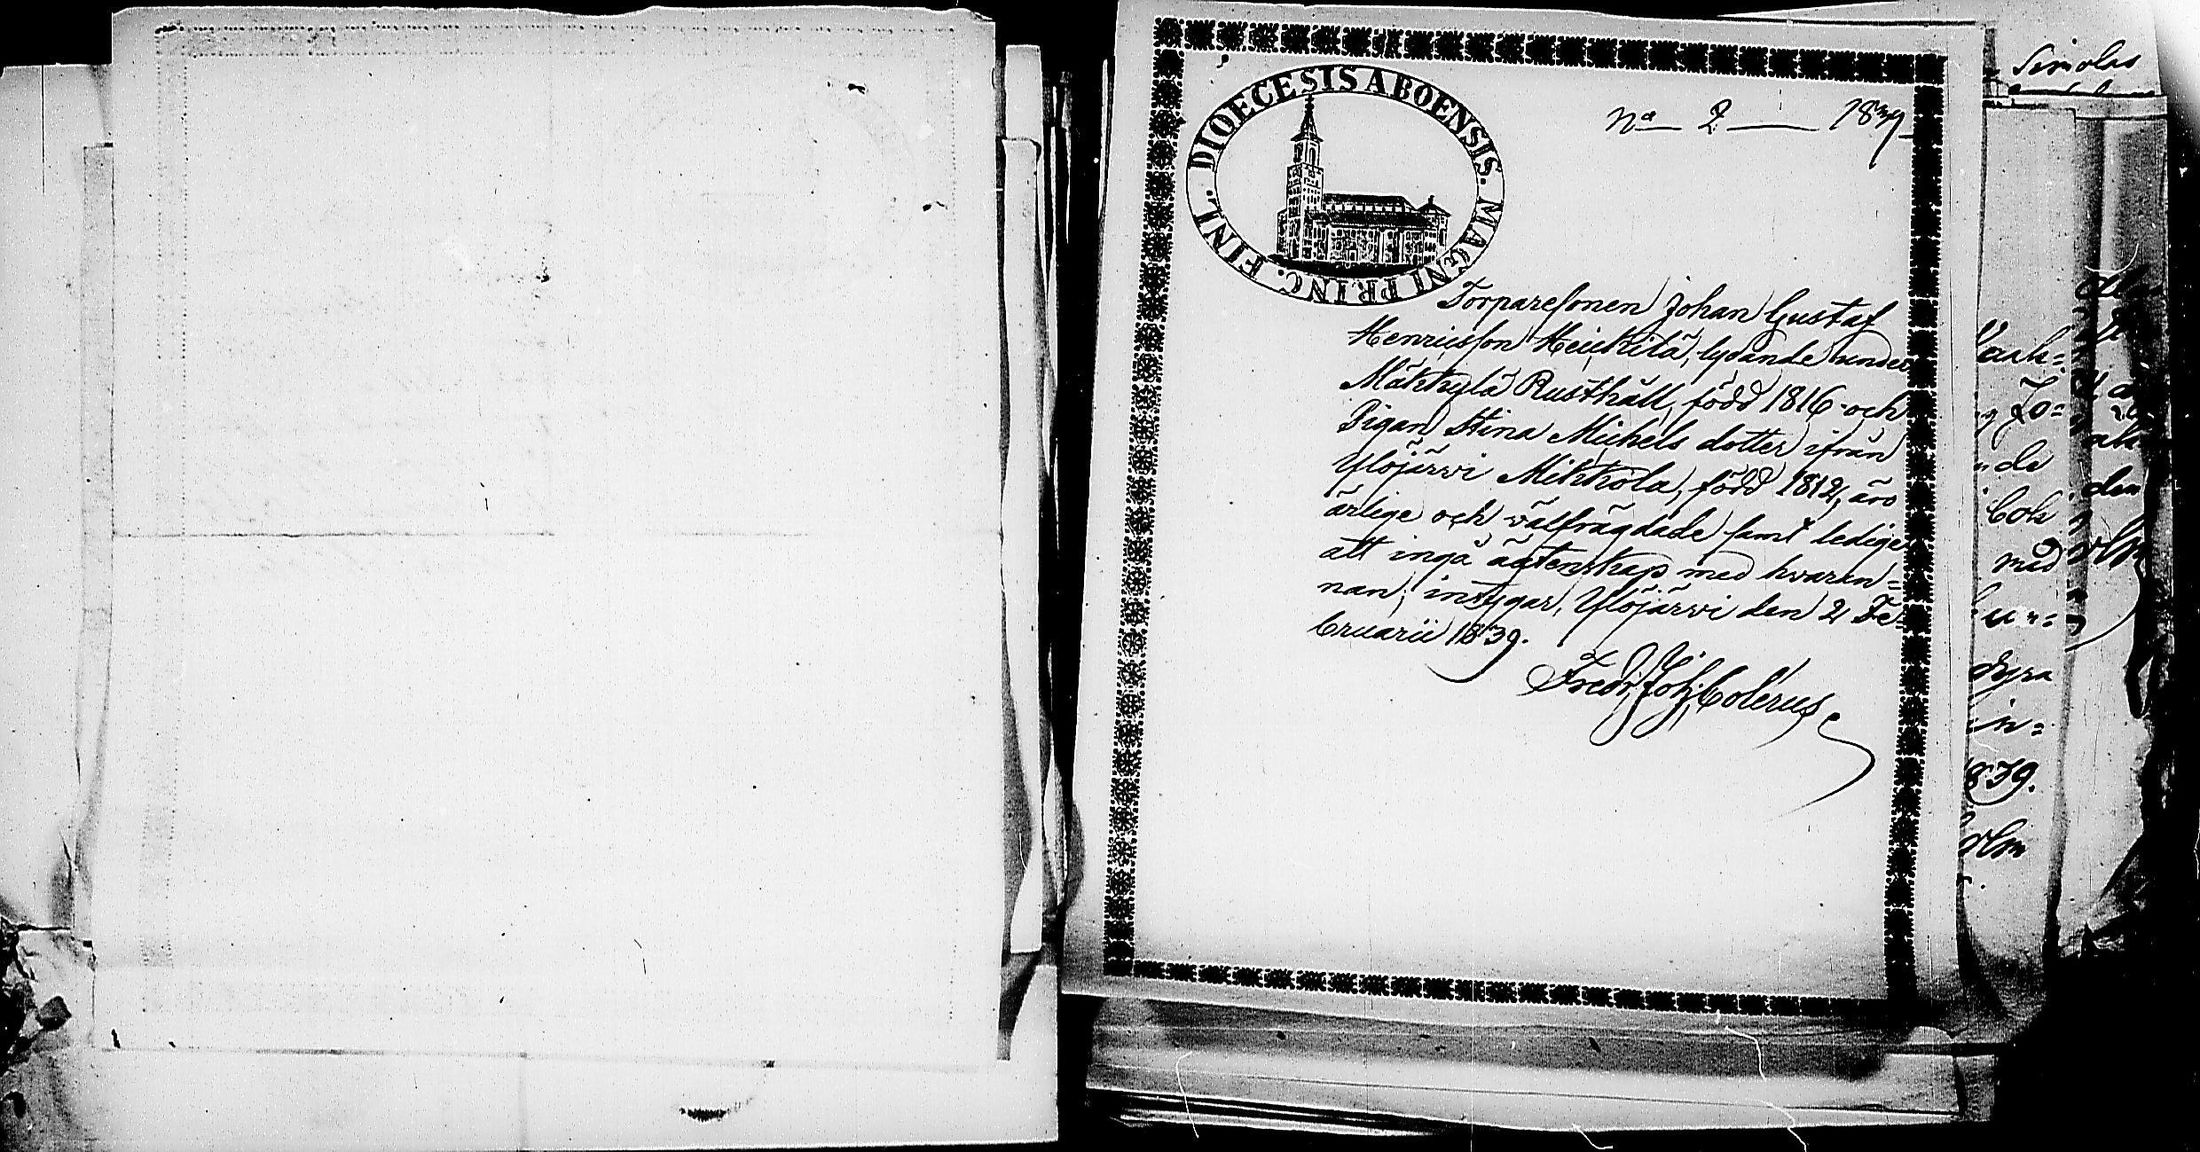 DIOECESIS ABOENSIS. MAGNI PRINC. FINL.
No 2 1839
Torparesonen Johan Gustaf
Henricsson Heickilä, lydande under
Mäkkylä Rusthåll, född 1816 och
Pigan Stina Michels dotter ifrån
Ylöjärvi Mikkola, född 1812, äro
ärlige och välfrägdade samt ledige
att ingå ägtenskap med hvaren=
nan, intygar, Ylöjärvi den 2 Fe=
bruarii 1839.
Fredr. Joh. Colerus
Simolas
Jo=
med
un=
dyra
in=
839.
den